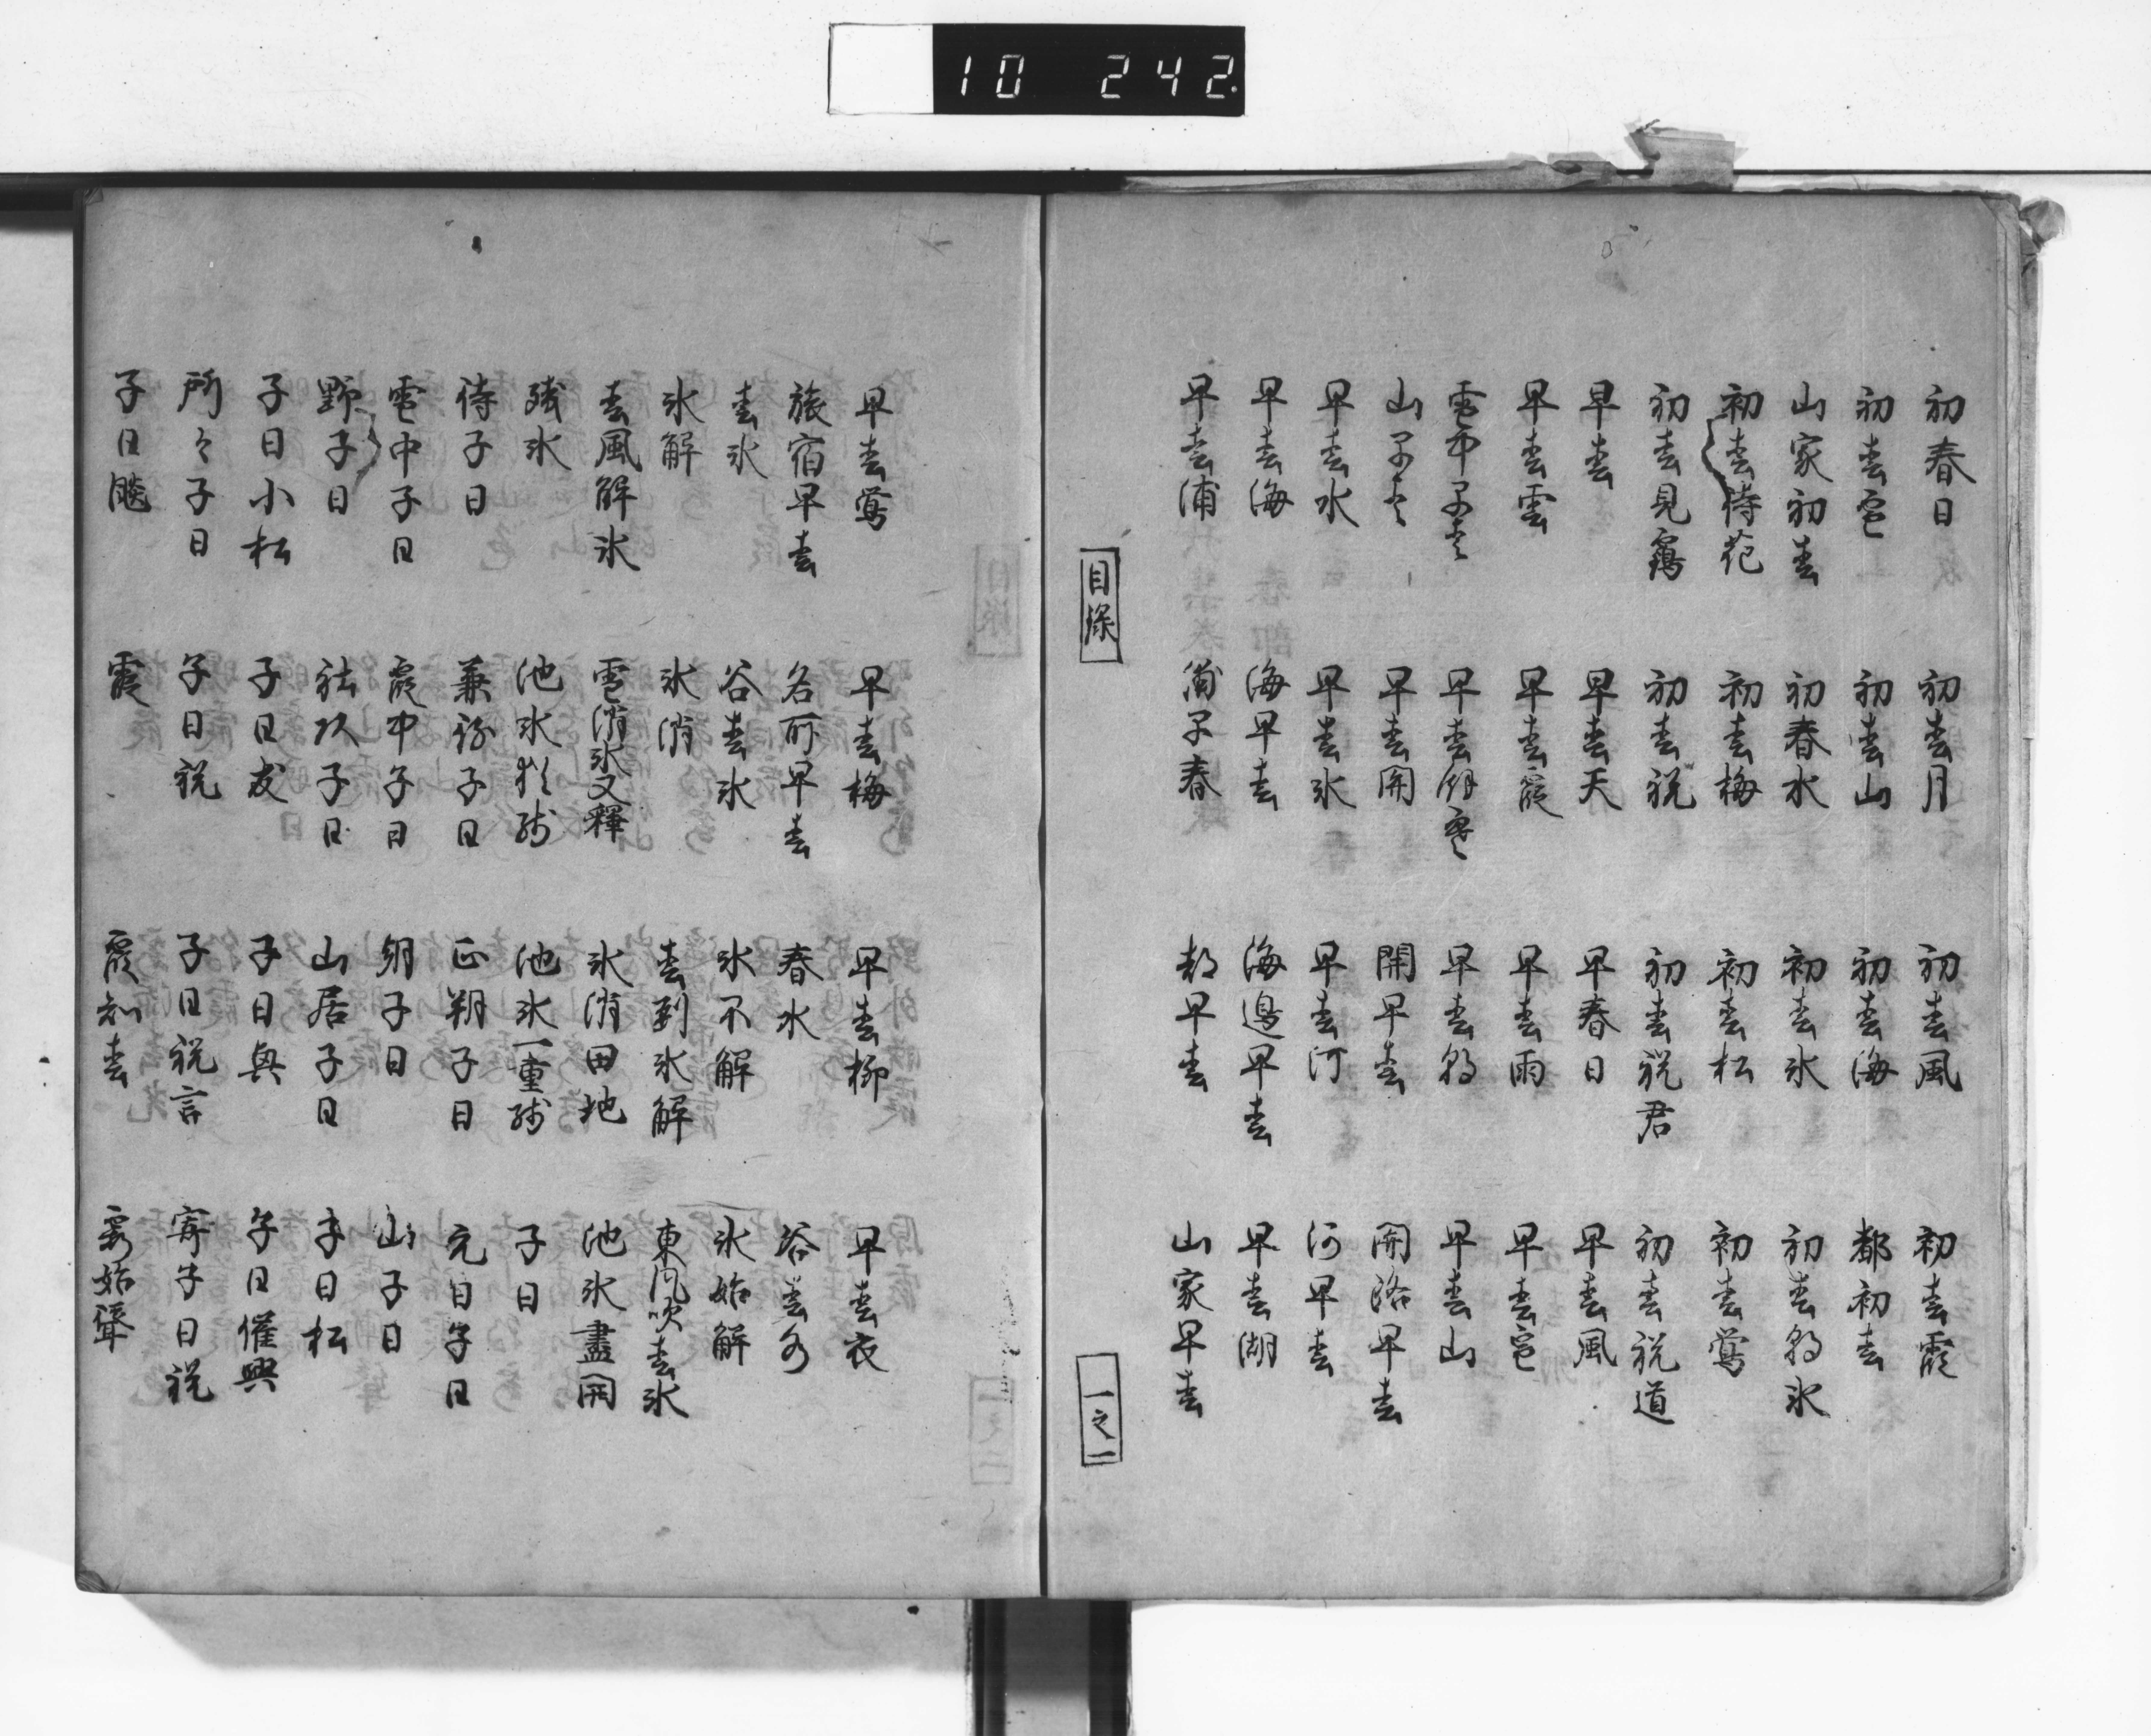 10 242
初春日 初春月 初春風 初春霞
初春雪 初春山 初春海 都初春
山家初春 初春水 初春氷 初春余氷
初春待花 初春梅 初春松 初春鶯
初春見鶴 初春祝 初春祝君 初春祝道
早春 早春天 早春日 早春風
早春雲 早春霞 早春雨 早春雪
雪中早春 早春余寒 早春 早春山
山早春 早春関 関早春 関路早春
早春水 早春氷 早春河 河早春
早春海 海早春 海辺早春 早春湖
早春浦 浦早春 都早春 山家早春
目録 一之一
早春鶯 早春梅 早春柳 早春衣
旅宿早春 名所早春 春水 谷春水
春氷 谷春氷 氷不解 氷始解
氷解 氷消 春到氷解 東風吹春氷
春風解氷 雪消氷又釋 氷消田地 池氷盡開
残氷 池氷猶残 池氷一重残 子日
待子日 兼待子日 正朔子日 元日子日
雪中子日 霞中子日 朝子日 山子日
野子日 社頭子日 山居子日 子日松
子日小松 子日友 子日興 子日催興
所々子日 子日祝 子日祝言 寄子日祝
子日 霞 霞知春 霞始聳